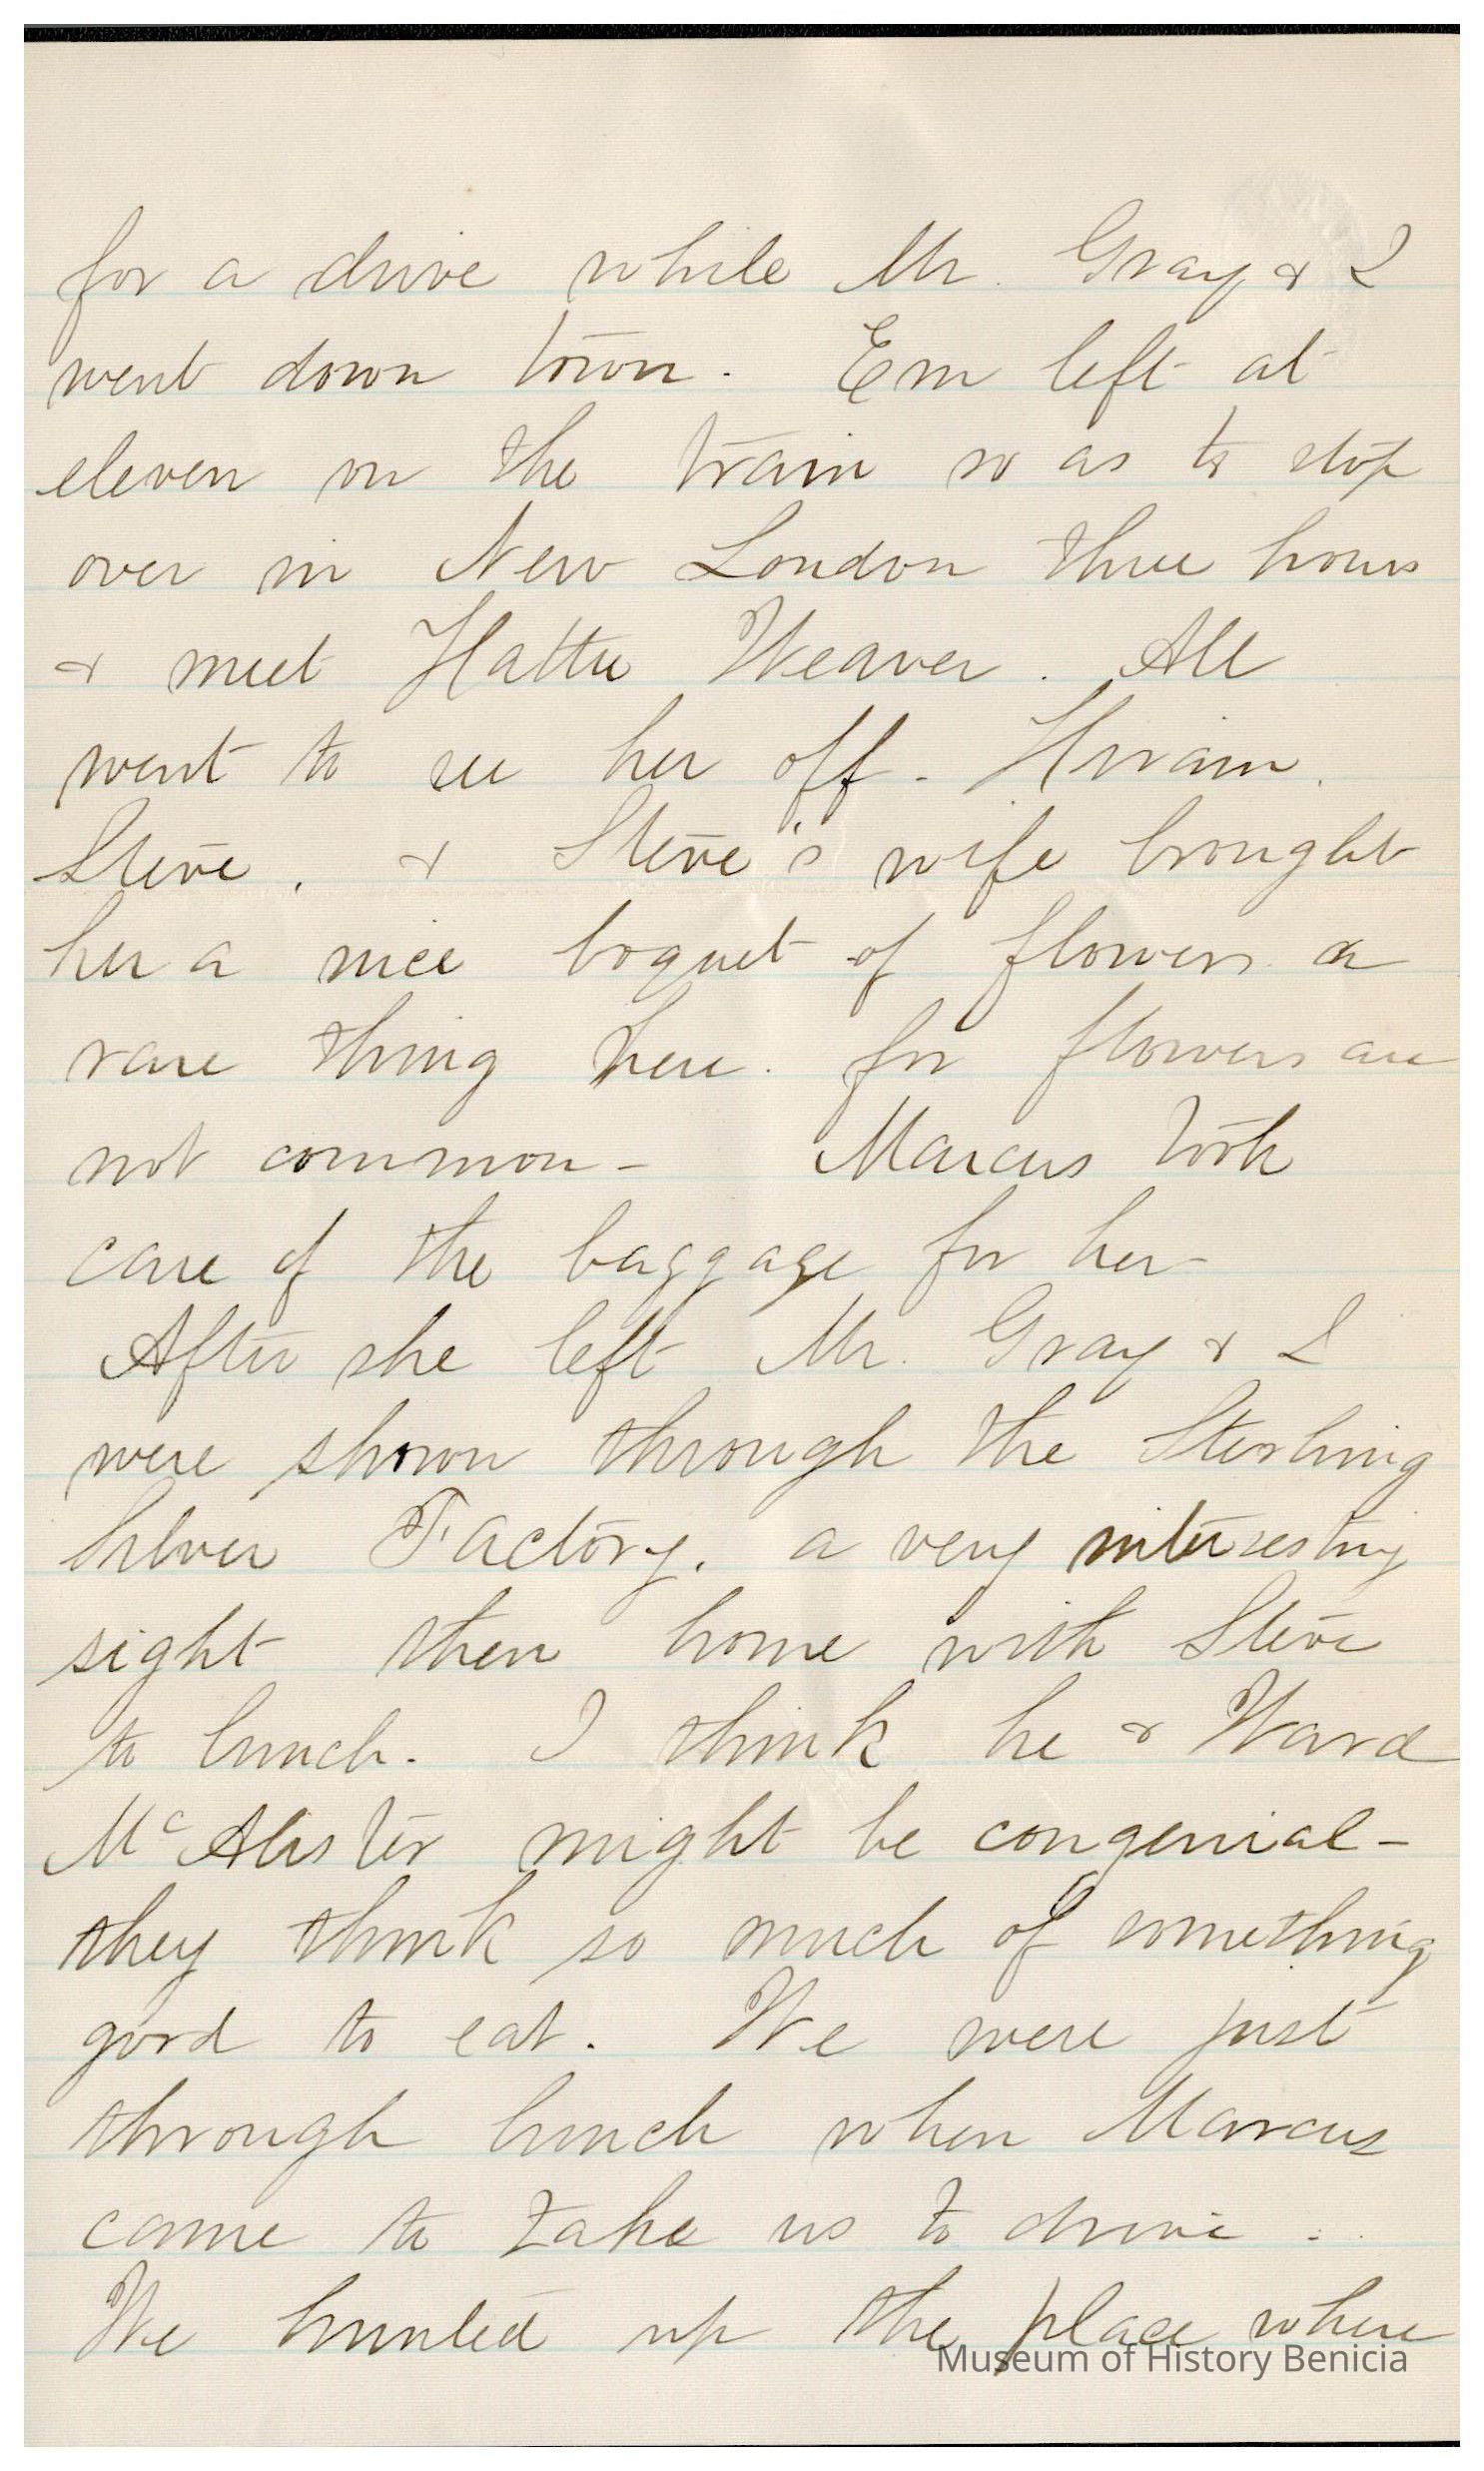 for a drive while Mr. Gray & I
went down town. Em left at
eleven on the train so as to stop
over in New London three hours
& meet Hattie Weaver. All
went to see her off - Hiram.
Steve, & Steve's wife brought
her a nice boquet of flowers a
rare thing here. for flowers are
not common - Marcus took
care of the baggage for her -
After she left Mr. Gray & I
were shown through the Sterling
Silver Factory, a very interesting
sight then home with Steve
to lunch. I think he & Ward
McAlister might be congenial -
they think so much of something
good to eat. We were just
through lunch when Marcus
came to take us to drive.
We hunted up the place where
Museum of History Benicia